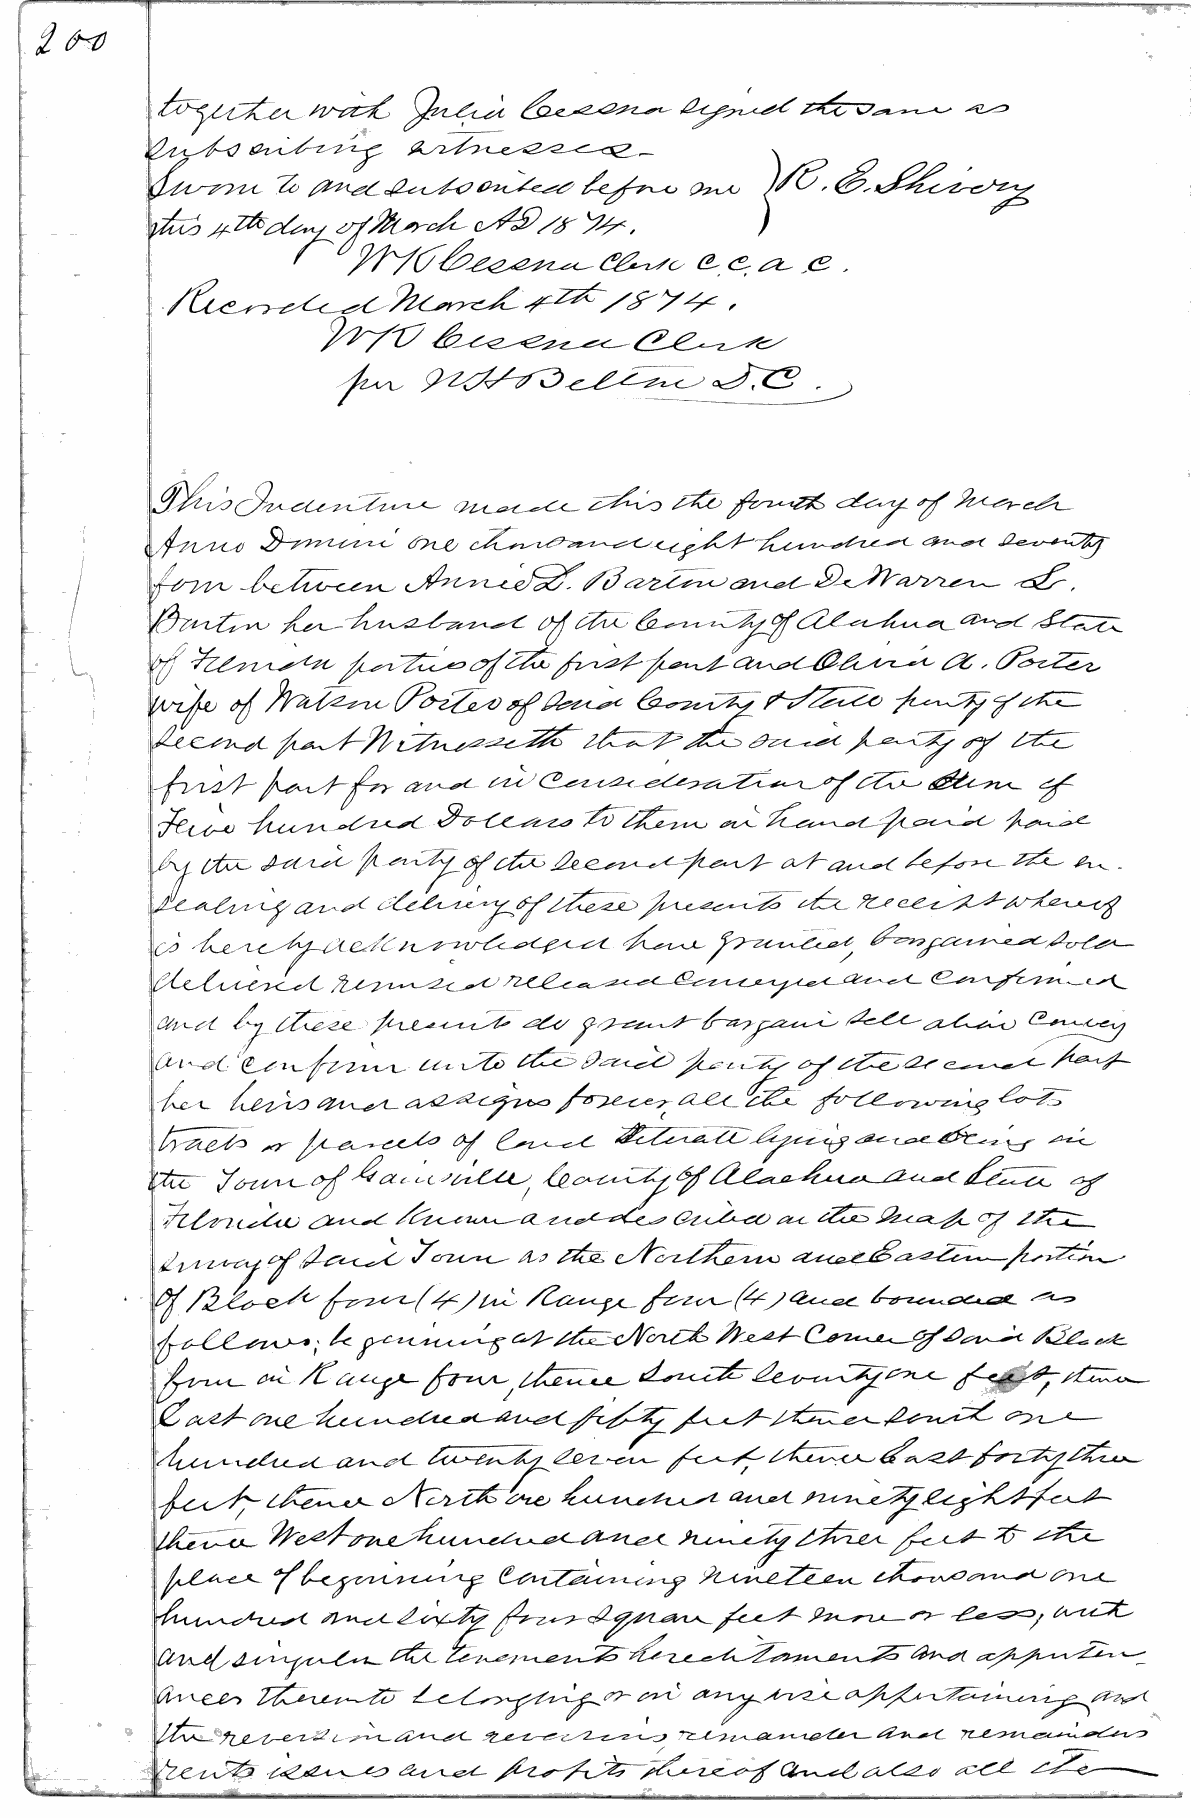 200
together with Julia Cessna signed the same as
subscribing witnesses-
Sworn to and subscribed before me } R. E. Shivery
this 4th day of March AD 1874.
WK Cessna Clerk C. C. A C.
Recorded March 4th 1874.
WK Cessna Clerk
per N H Belton D. C.
This Indenture made this the fourth day of March
Anno Domini one thousand eight hundred and seventy
four between Annie L. Barton and DeWarren L.
Barton her husband of the County of Alachua and State
of Florida parties of the first part and Olivia A. Porter
wife of Watson Porter of said County & State party of the
second part Witnesseth that the said party of the
first part for and in consideration of the sum of
Five hundred Dollars to them in hand paid paid
by the said party of the second part at and before the en-
sealing and delivery of these presents the receipt whereof
is hereby acknowledged have granted, bargained sold
delivered remised released conveyed and confirmed
and by these presents do grant bargain sell alien convey
and confirm unto the said party of the second part
her heirs and assigns forever, all the following lots
tracts or parcels of land Situate lying and being in
the Town of Gainsville, County of Alachua and State of
Florida and known and described on the map of the
survey of said Town as the Northern and Eastern portion
of Block four (4) in Range four (4) and bounded as
follows; beginning at the North West Corner of said Block
four in Range four, thence South seventy one feet, thence
East one hundred and fifty feet thence south one
hundred and twenty seven feet, thence East forty three
feet, thence North one hundred and ninety eight feet
thence West one hundred and ninety three feet to the
place of beginning Containing nineteen thousand one
hundred and sixty four square feet more or less, with
and singular the tenements hereditaments and appurten-
ances thereunto belonging or in any wise appertaining and
the reversion and reversions, remainder and remainders
rents issues and profits thereof and also all the